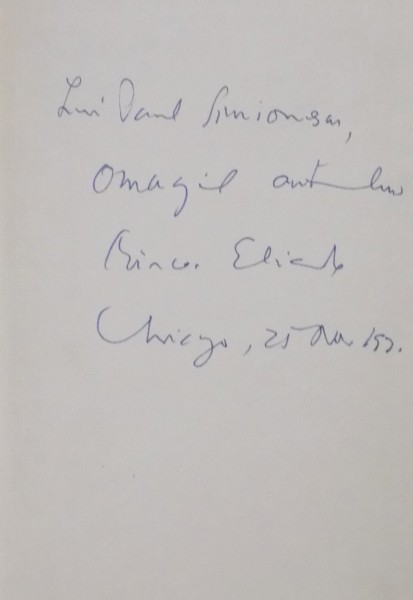 Lui Paul Simionescu,
Omagiul autorului
Mircea Eliade
Chicago, 25 Nov